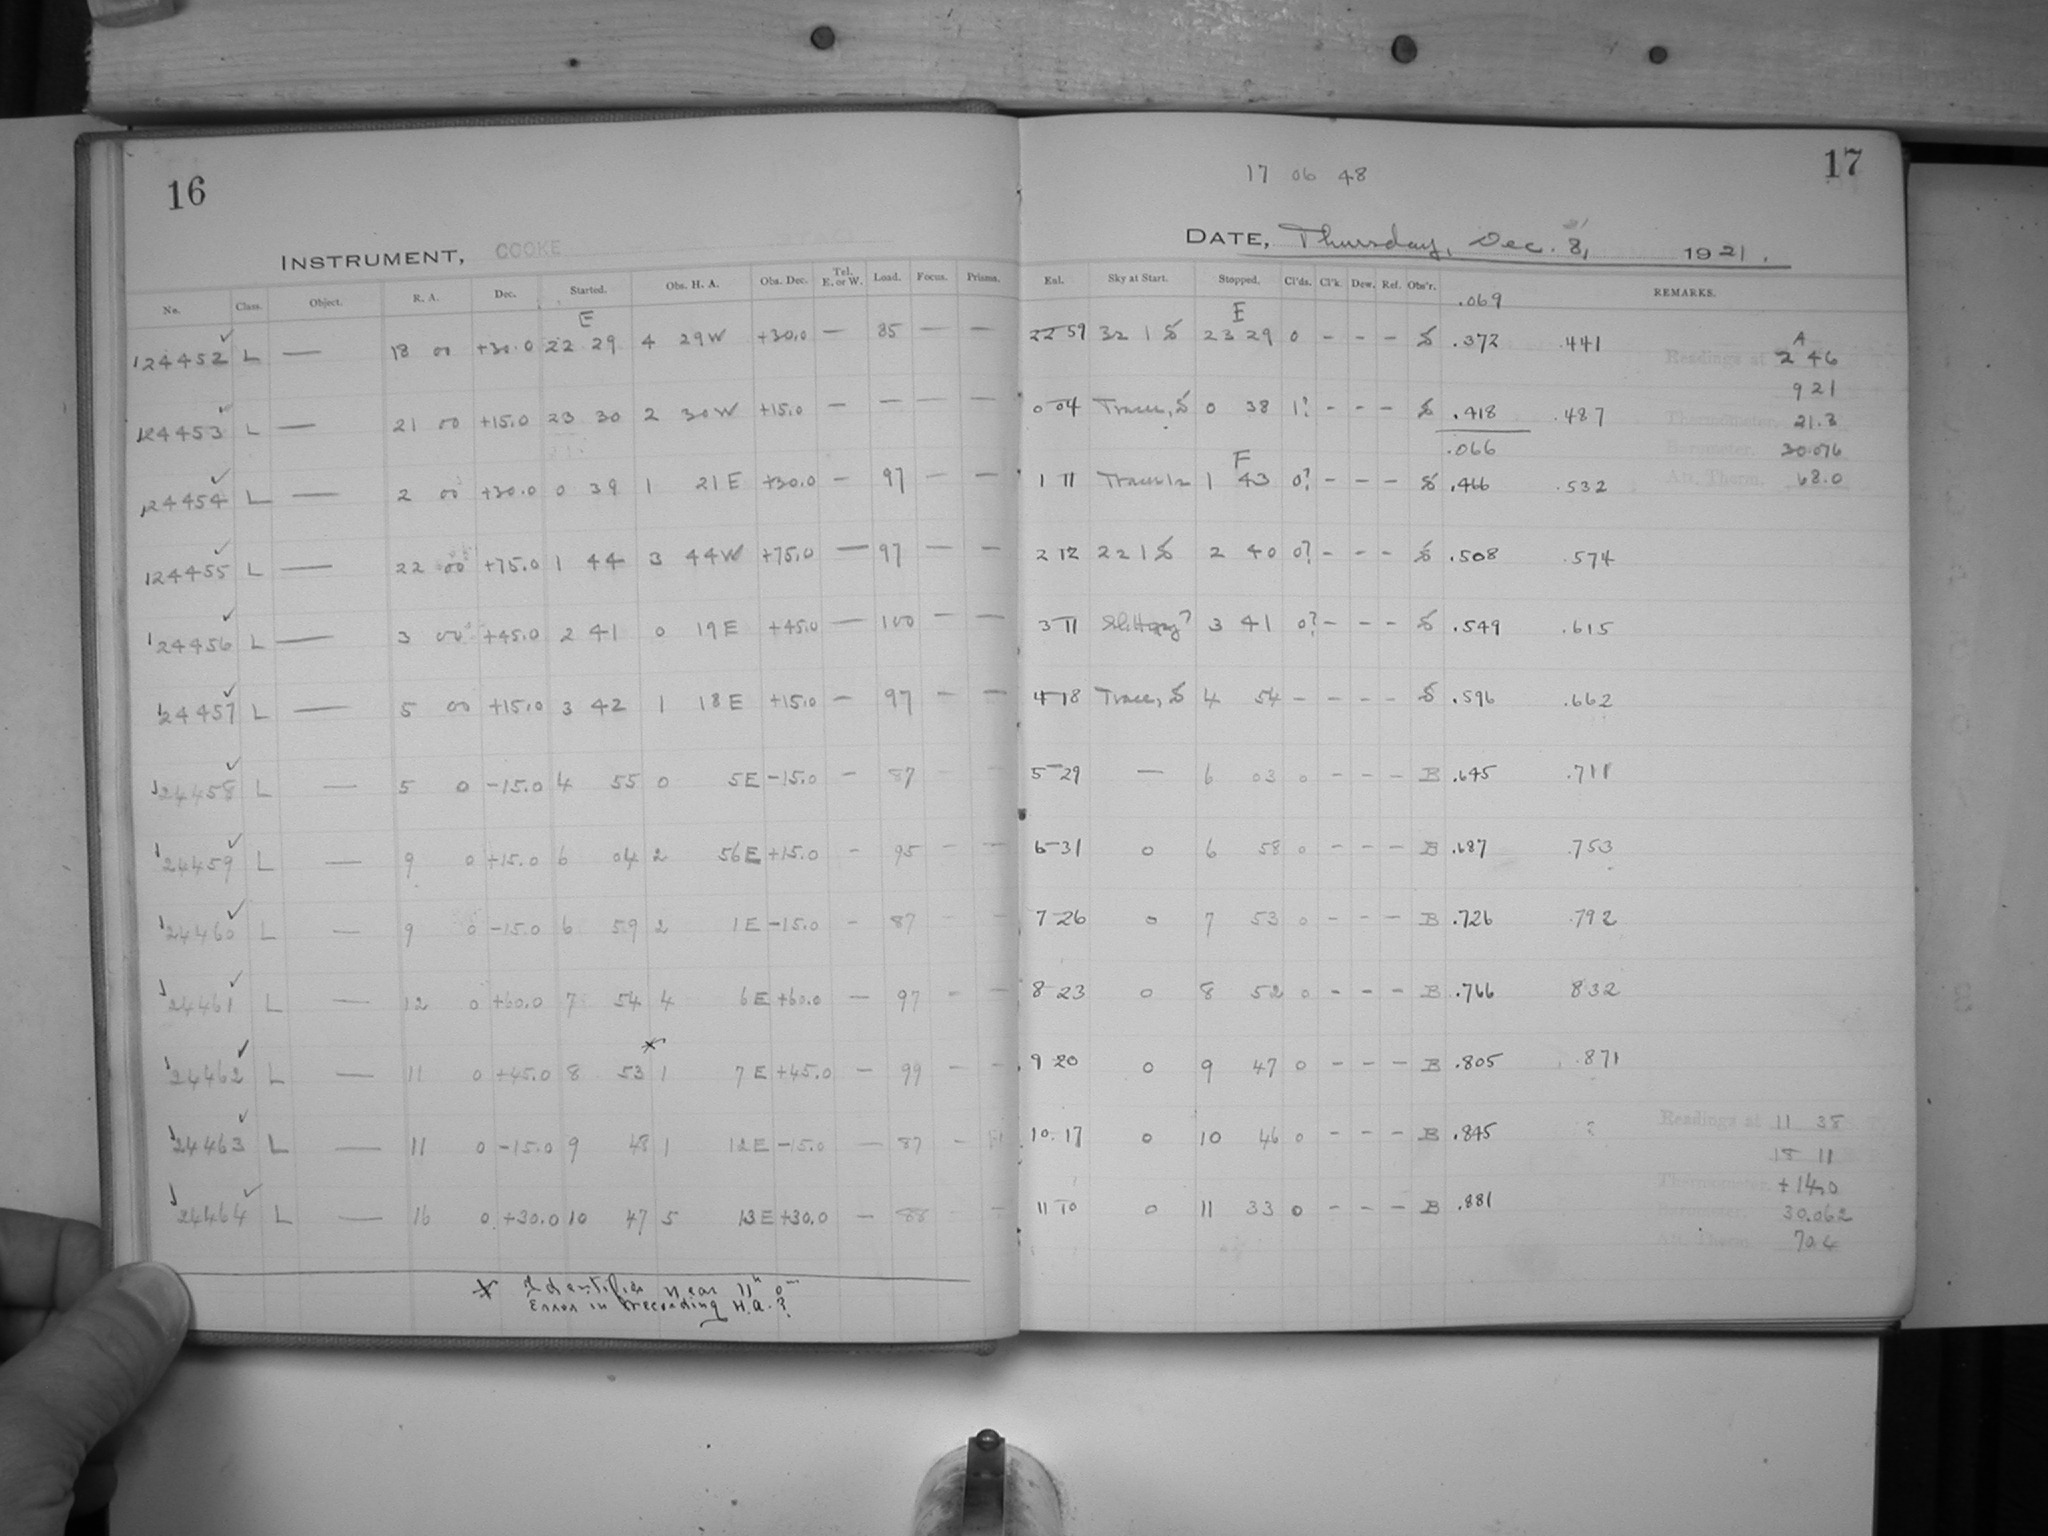 16
INSTRUMENT, COOKE
No. Class. Object. R. A. Dec. Started. Obs. H. A. Obs. Dec. Tel. E. or W. Load. Focus. Prisms.
E
124452 L — 18 00 +30.0 22 29 4 29W +30.0 — 85 — —
124453 L — 21 00 +15.0 23 30 2 30W +15.0 — — — —
124454 L — 2 00 +30.0 0 39 1 21E +30.0 — 97 — —
124455 L — 22 00 +75.0 1 44 3 44W +75.0 — 97 — —
124456 L — 3 00 +45.0 2 41 0 19E +45.0 — 100 — —
124457 L — 5 00 +15.0 3 42 1 18E +15.0 — 97 — —
124458 L — 5 0 -15.0 4 55 0 5E -15.0 — 87 — —
124459 L — 9 0 +15.0 6 04 2 56E +15.0 - 95 — —
124460 L — 9 0 -15.0 6 59 2 1E -15.0 - 87 — —
124461 L — 12 0 +60.0 7 54 4 6E +60.0 — 97 — —
*
124462 L — 11 0 +45.0 8 53 1 7E +45.0 — 99 — —
124463 L — 11 0 -15.0 9 48 1 12E -15.0 — 87 —
124464 L — 16 0 +30.0 10 47 5 13E +30.0 — 88 — —
* Identifies near 11h 0m
Error in recording H.A.?
17
17 06 48
DATE, Thursday, Dec. 8, 1921.
Exl. Sky at Start. Stopped. Cl'ds. Cl'k. Dew. Ref. Obs'r. REMARKS.
.069
E
22 59 32 1 S 23 29 0 - - - S .372 .441
A
Readings at 2 46
9 21
0 04 Traces, S 0 38 1? - - - S .418 .487
Thermometer, 21.3
.066
Barometer, 30.076
F
1 11 1 43 0? - - - S .466 .532
Att. Therm. 68.0
2 12 22 1 S 2 40 0? - - - S .508 .574
3 11 Sl. Hazy? 3 41 0? - - - S .549 .615
4 18 Trace, S 4 54 - - - - S .596 .662
5 29 — 6 03 0 - - - B .645 .711
6 31 0 6 58 0 - - - B .687 .753
7 26 0 7 53 0 - - - B .726 .792
8 23 0 8 52 0 - - - B .766 832
9 20 0 9 47 0 - - - B .805 .871
10 17 0 10 46 0 - - - B .845 ?
Readings at 11 38
Thermometer, +14.0
11 10 0 11 33 0 - - - B .881
Barometer, 30.062
Att. Therm. 70.4